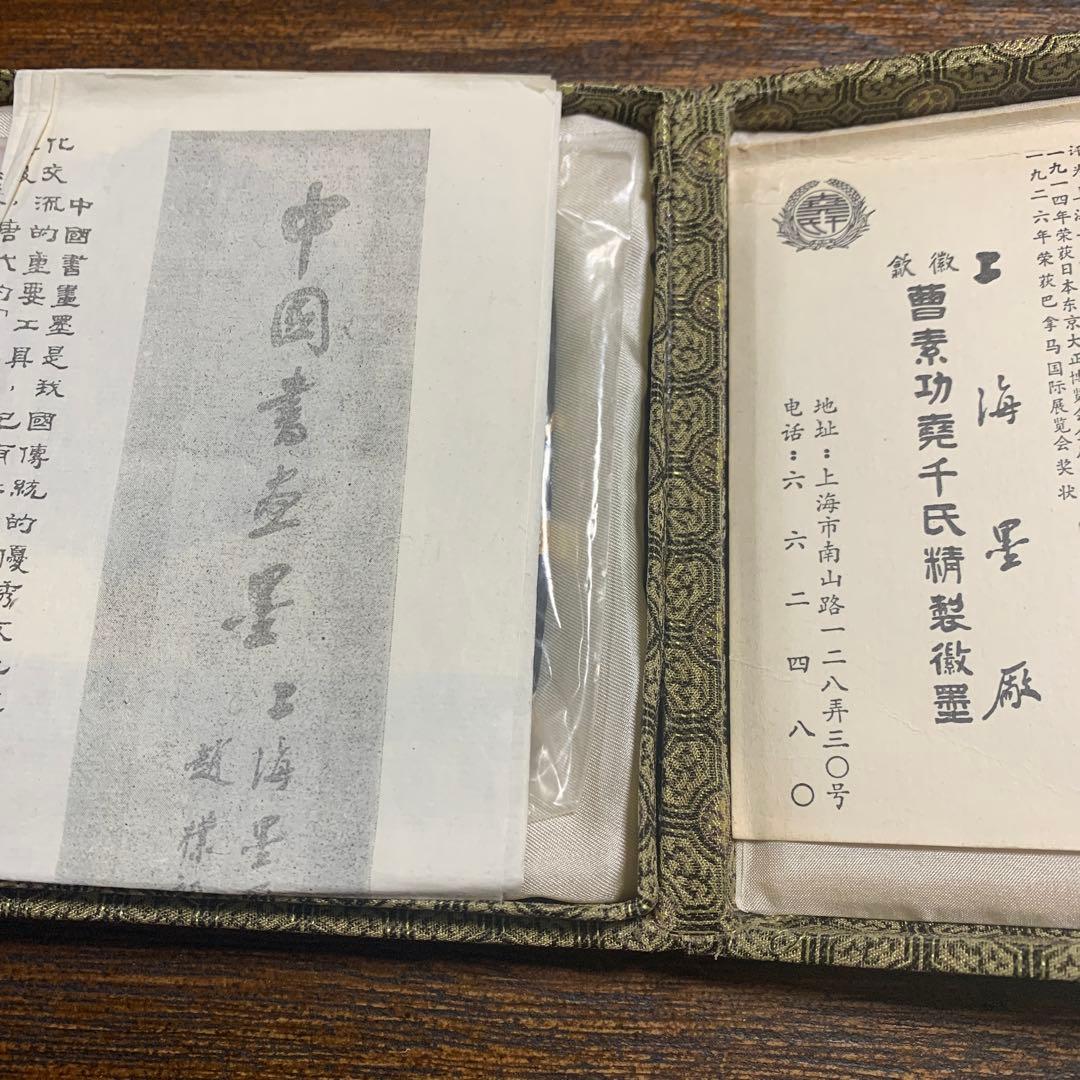 一九一四年荣获日本东京大正博览会
一九二六年荣获巴拿马国际展览会奖状
上海墨厰
徽歙
曹素功堯千氏精製徽墨
地址：上海市南山路一二八弄三〇号
电话：六六二四八〇
中國書画墨
上海墨
趙樸
中國書畫墨是我國傳統的優秀文
化交流的重要工具，已有
唐代的「